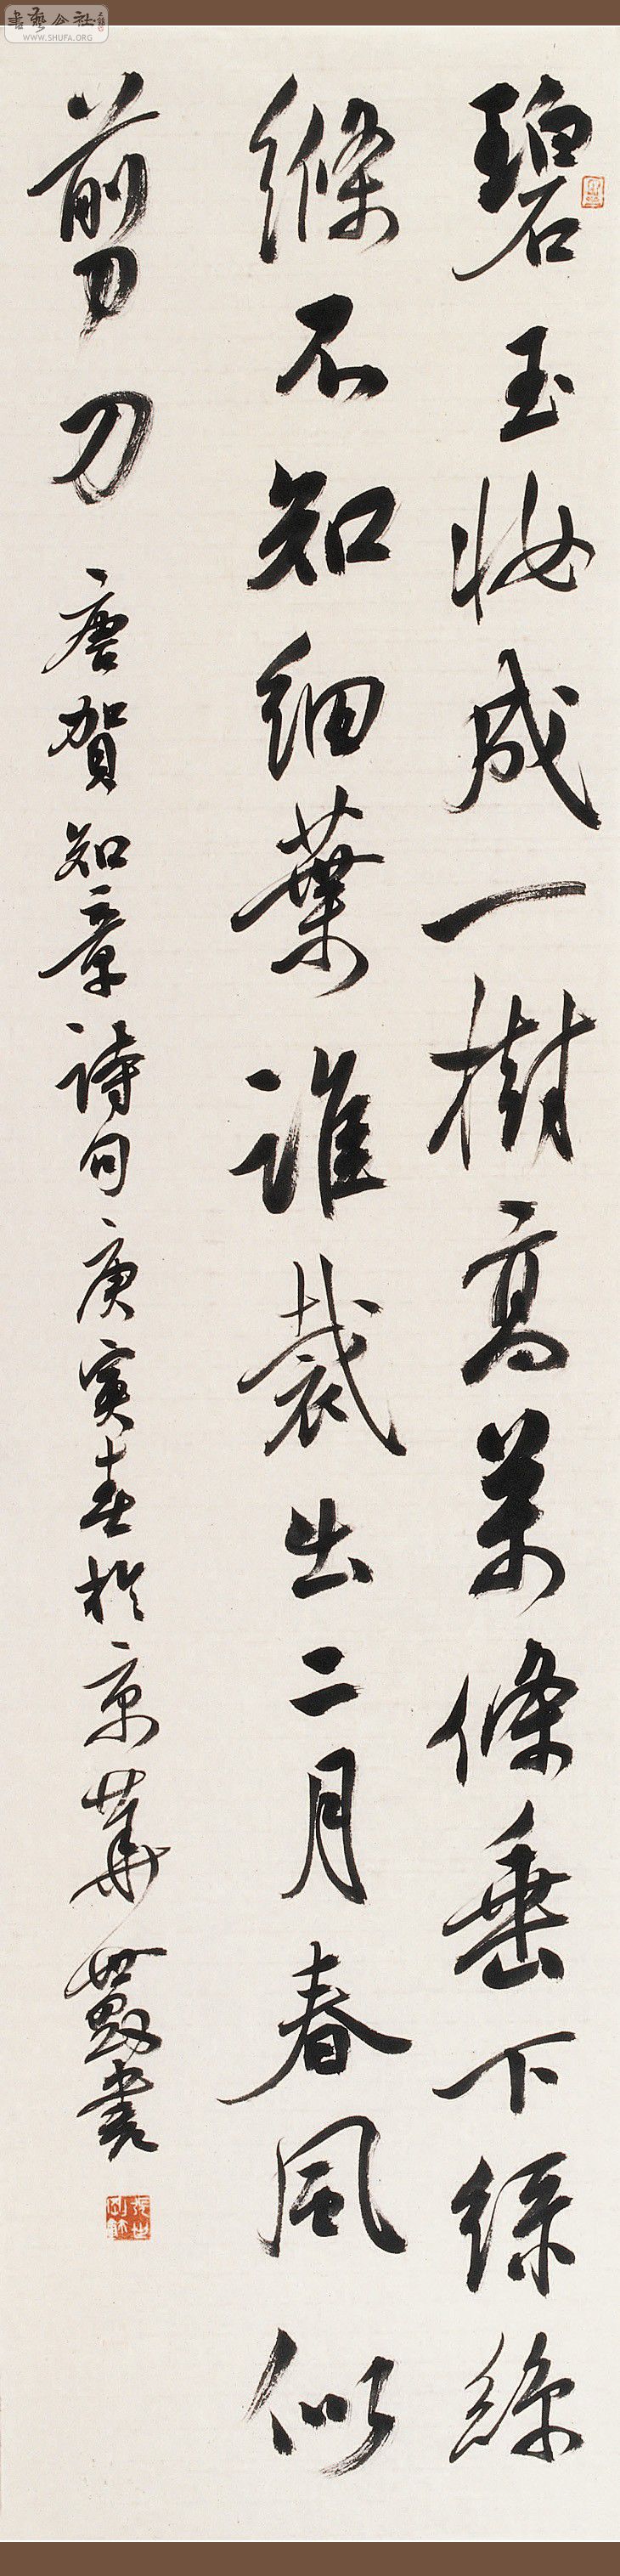 書藝公社
WWW.SHUFA.ORG
碧玉妝成一樹高萬條垂下綠絲
縧不知細葉誰裁出二月春風似
剪刀 唐賀知章詩句庚寅春於京華世書